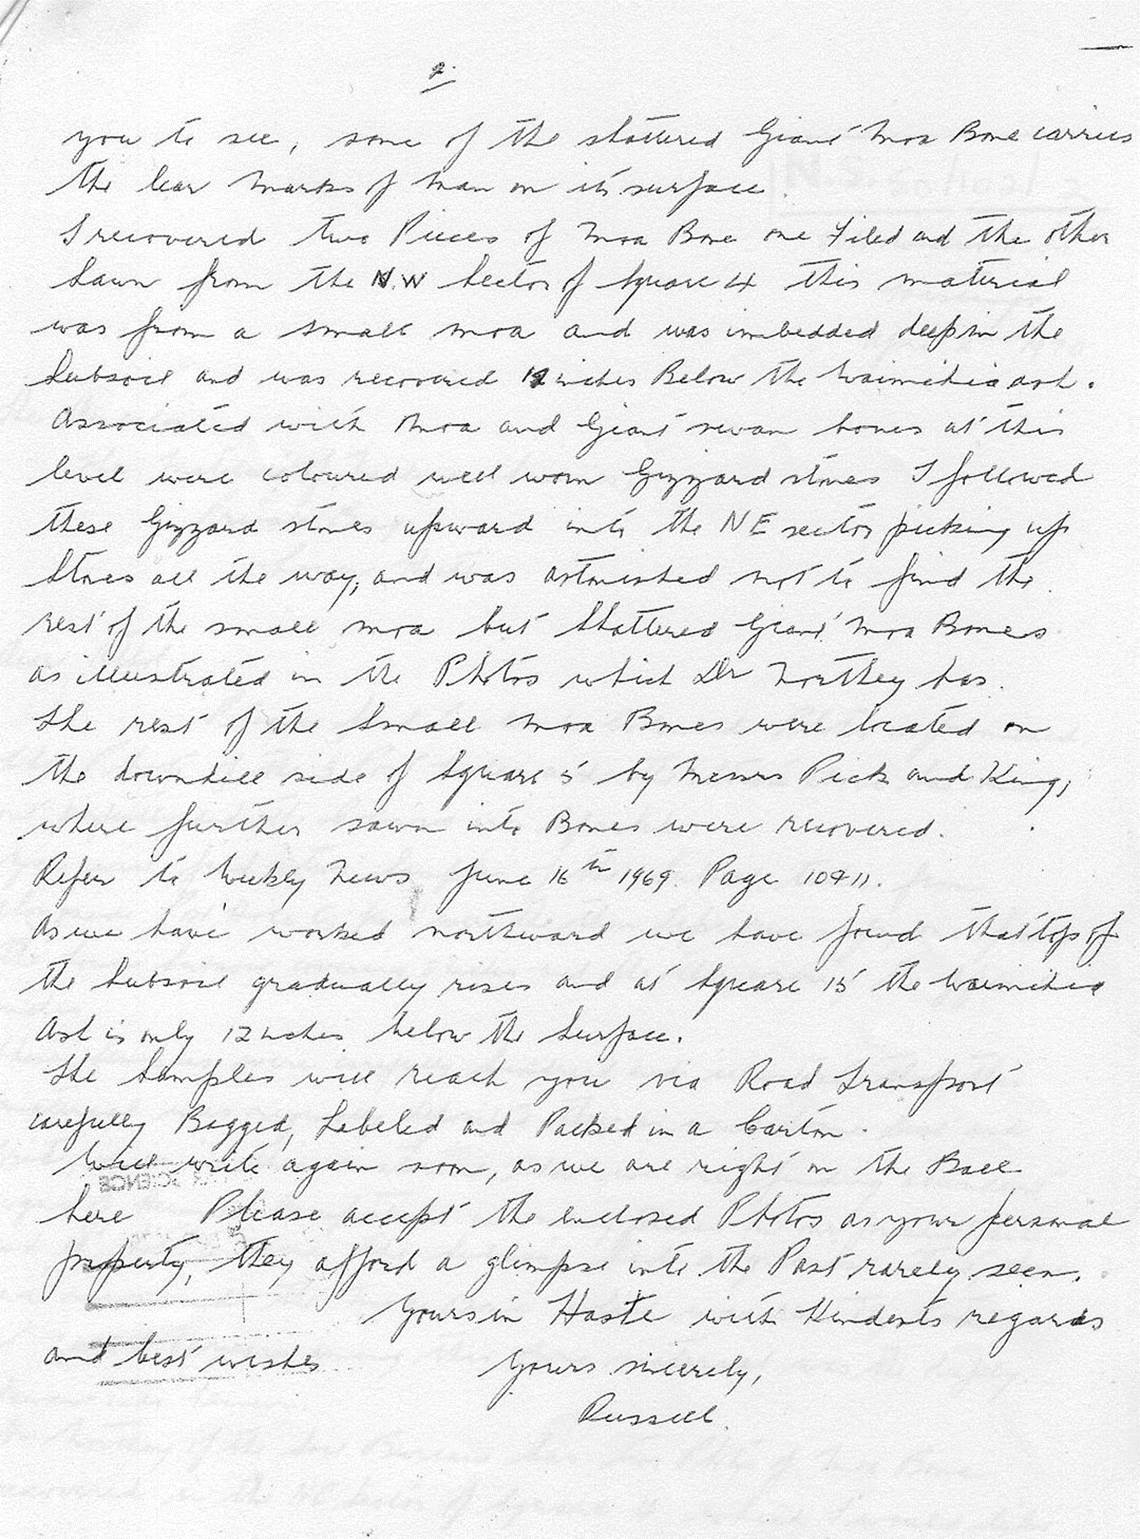 2.
you to see, some of the shattered Giant Moa Bone carries
the lear marks of man on its surface.
I recovered two Pieces of Moa Bone one Filed and the other
Sawn from the N.W Sector of Square 4 this material
was from a small moa and was imbedded deep in the
Subsoil and was recovered inches Below the Waimihia ash.
Associated with Moa and Giant swan bones at this
level were coloured well worn Gizzard stones I followed
these Gizzard stones upward into the NE sector picking up
Stones all the way, and was astonished not to find the
rest of the small moa but Shattered Giant Moa Bones
as illustrated in the Photos which Dr Northey has.
The rest of the Small Moa Bones were located on
the downhill side of Square 5 by Messrs Pick and King,
where further sawn into Bones were recovered.
Refer to Weekly News June 16th 1969. Page 10411.
As we have worked northward we have found that tops of
the Subsoil gradually rises and at Square 15 the Waimihia
Ash is only 12 inches below the Surface.
The Samples will reach you via Road Transport
carefully Bagged, Labeled and Packed in a Carton.
Will write again soon, as we are right on the Ball
here Please accept the enclosed Photos as your personal
property, they afford a glimpse into the Past rarely seen.
Yours in Haste with Kindests regards
and best wishes
Yours sincerely,
Russell.